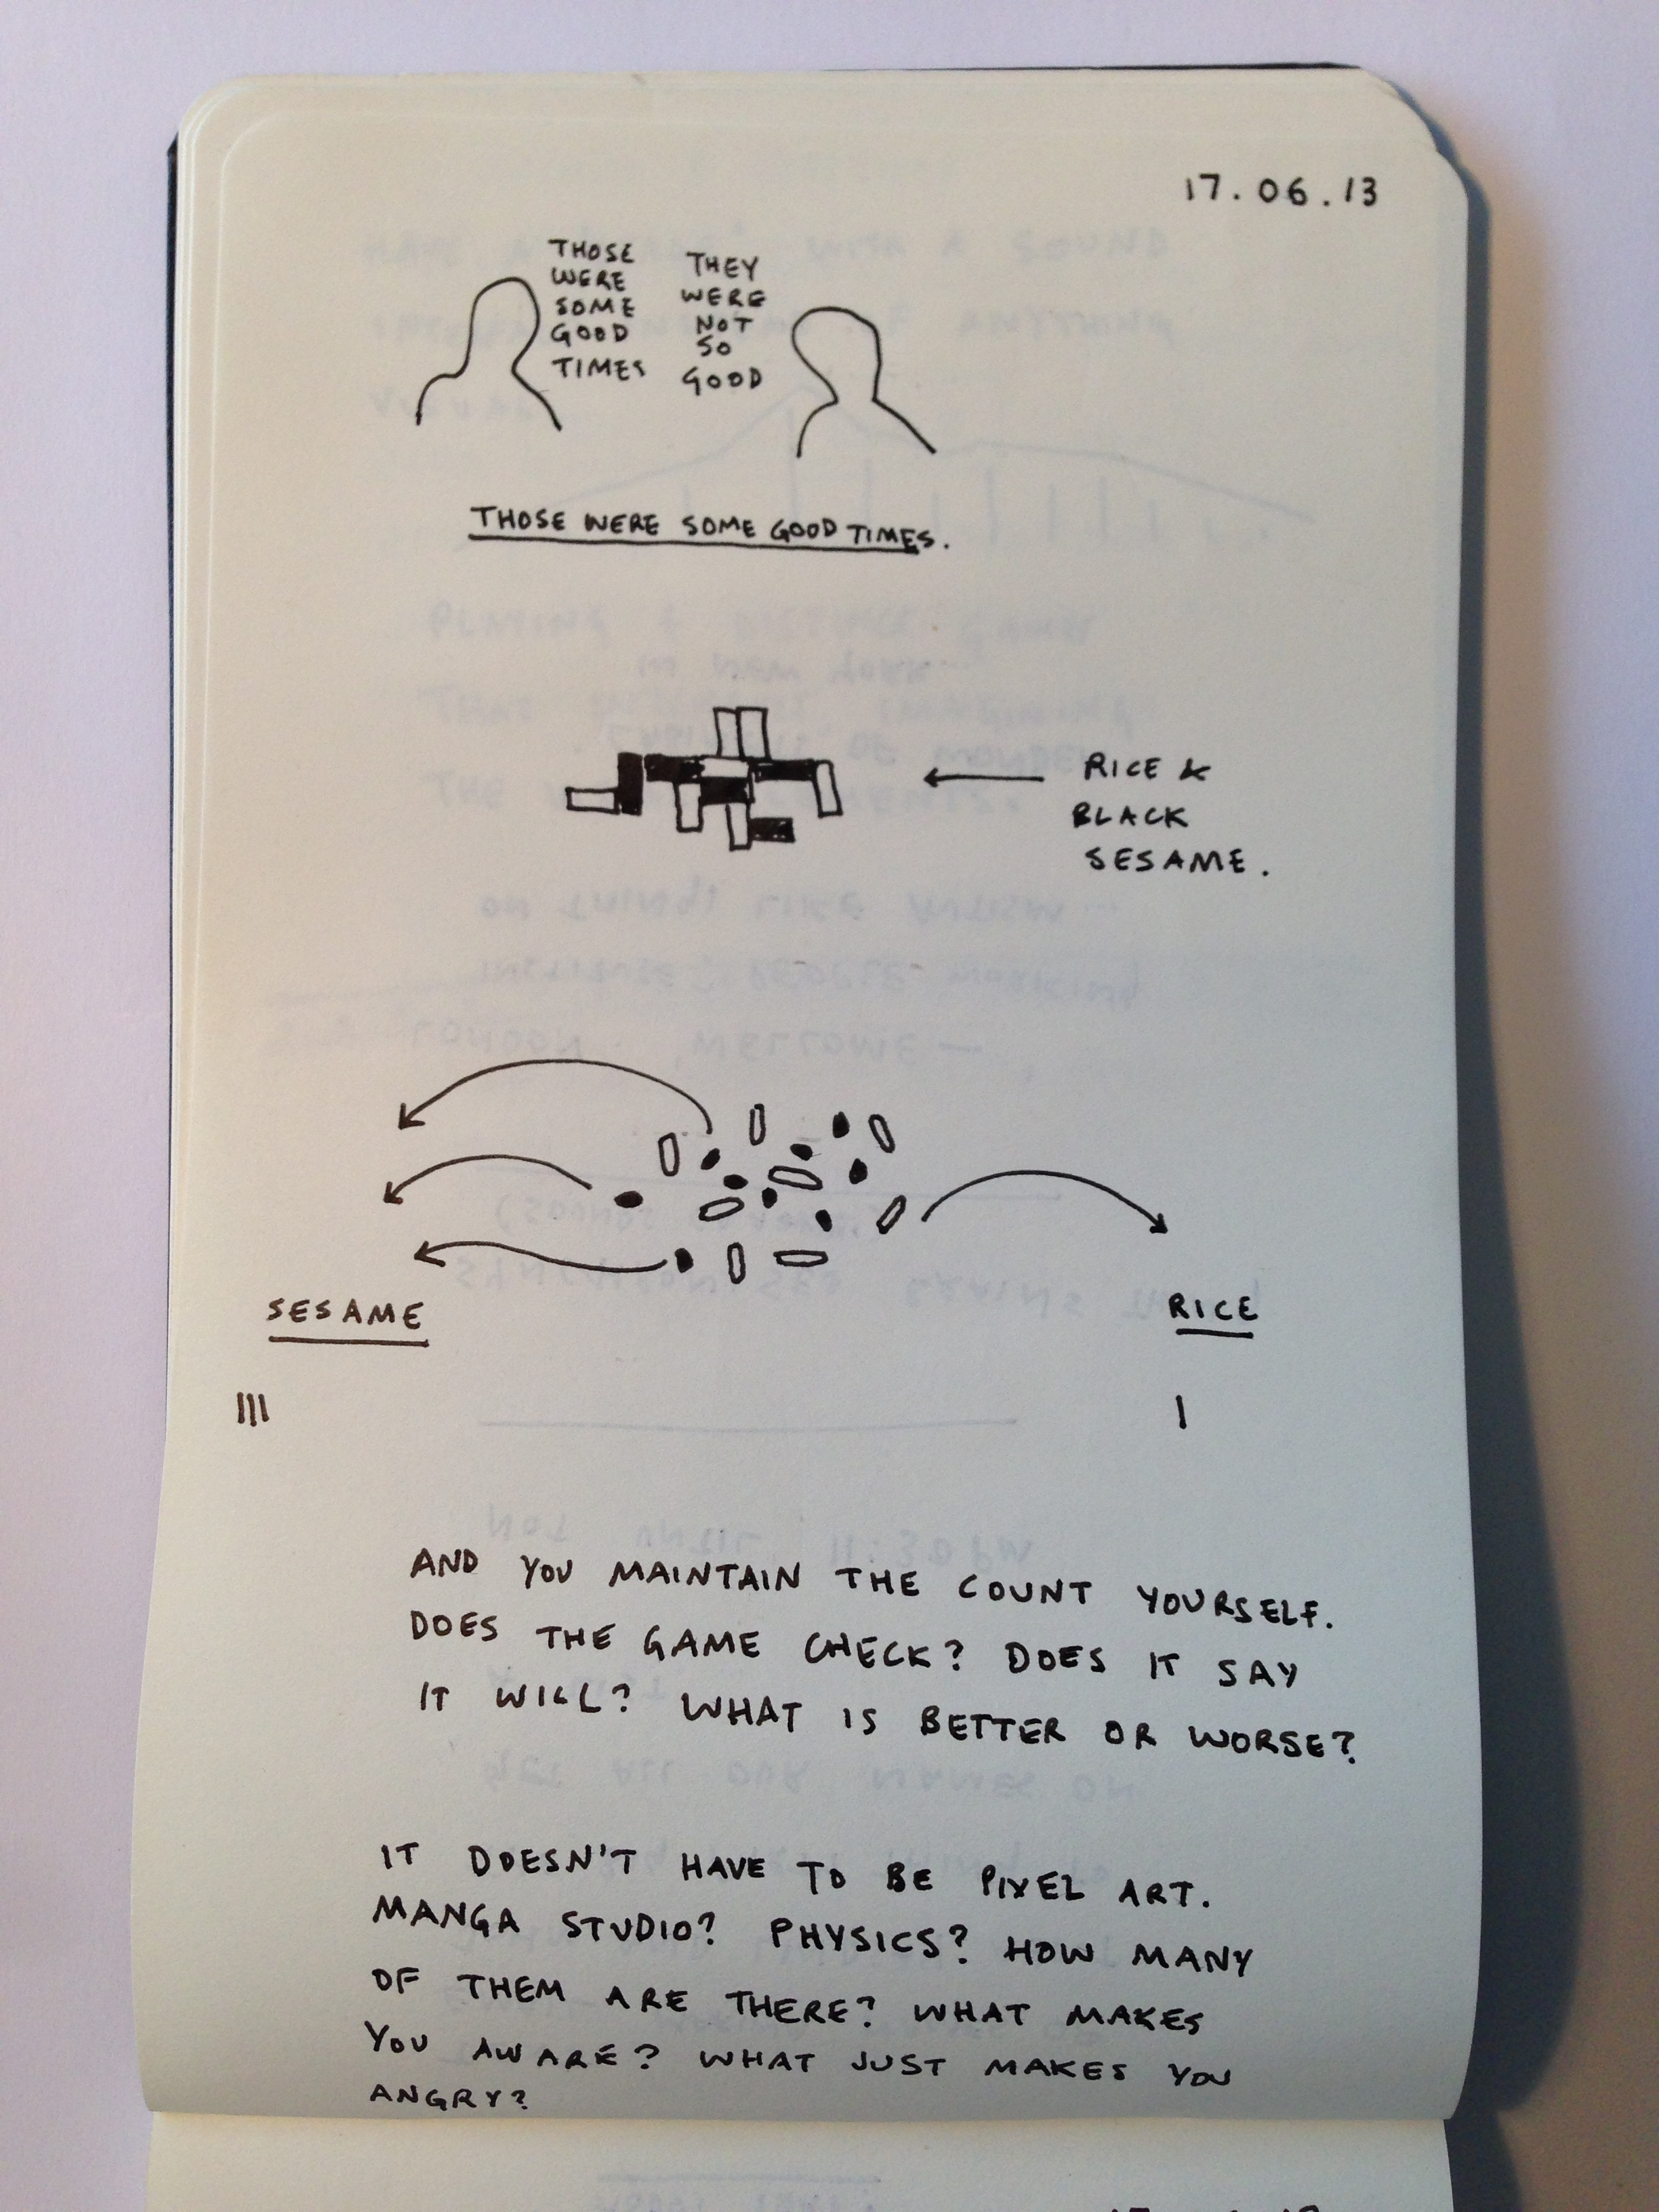 17.06.13
THOSE
WERE
SOME
GOOD
TIMES
THEY
WERE
NOT
SO
GOOD
THOSE WERE SOME GOOD TIMES.
RICE &
BLACK
SESAME.
SESAME
RICE
AND YOU MAINTAIN THE COUNT YOURSELF.
DOES THE GAME CHECK? DOES IT SAY
IT WILL? WHAT IS BETTER OR WORSE?
IT DOESN'T HAVE TO BE PIXEL ART.
MANGA STUDIO? PHYSICS? HOW MANY
OF THEM ARE THERE? WHAT MAKES
YOU AWARE? WHAT JUST MAKES YOU
ANGRY?